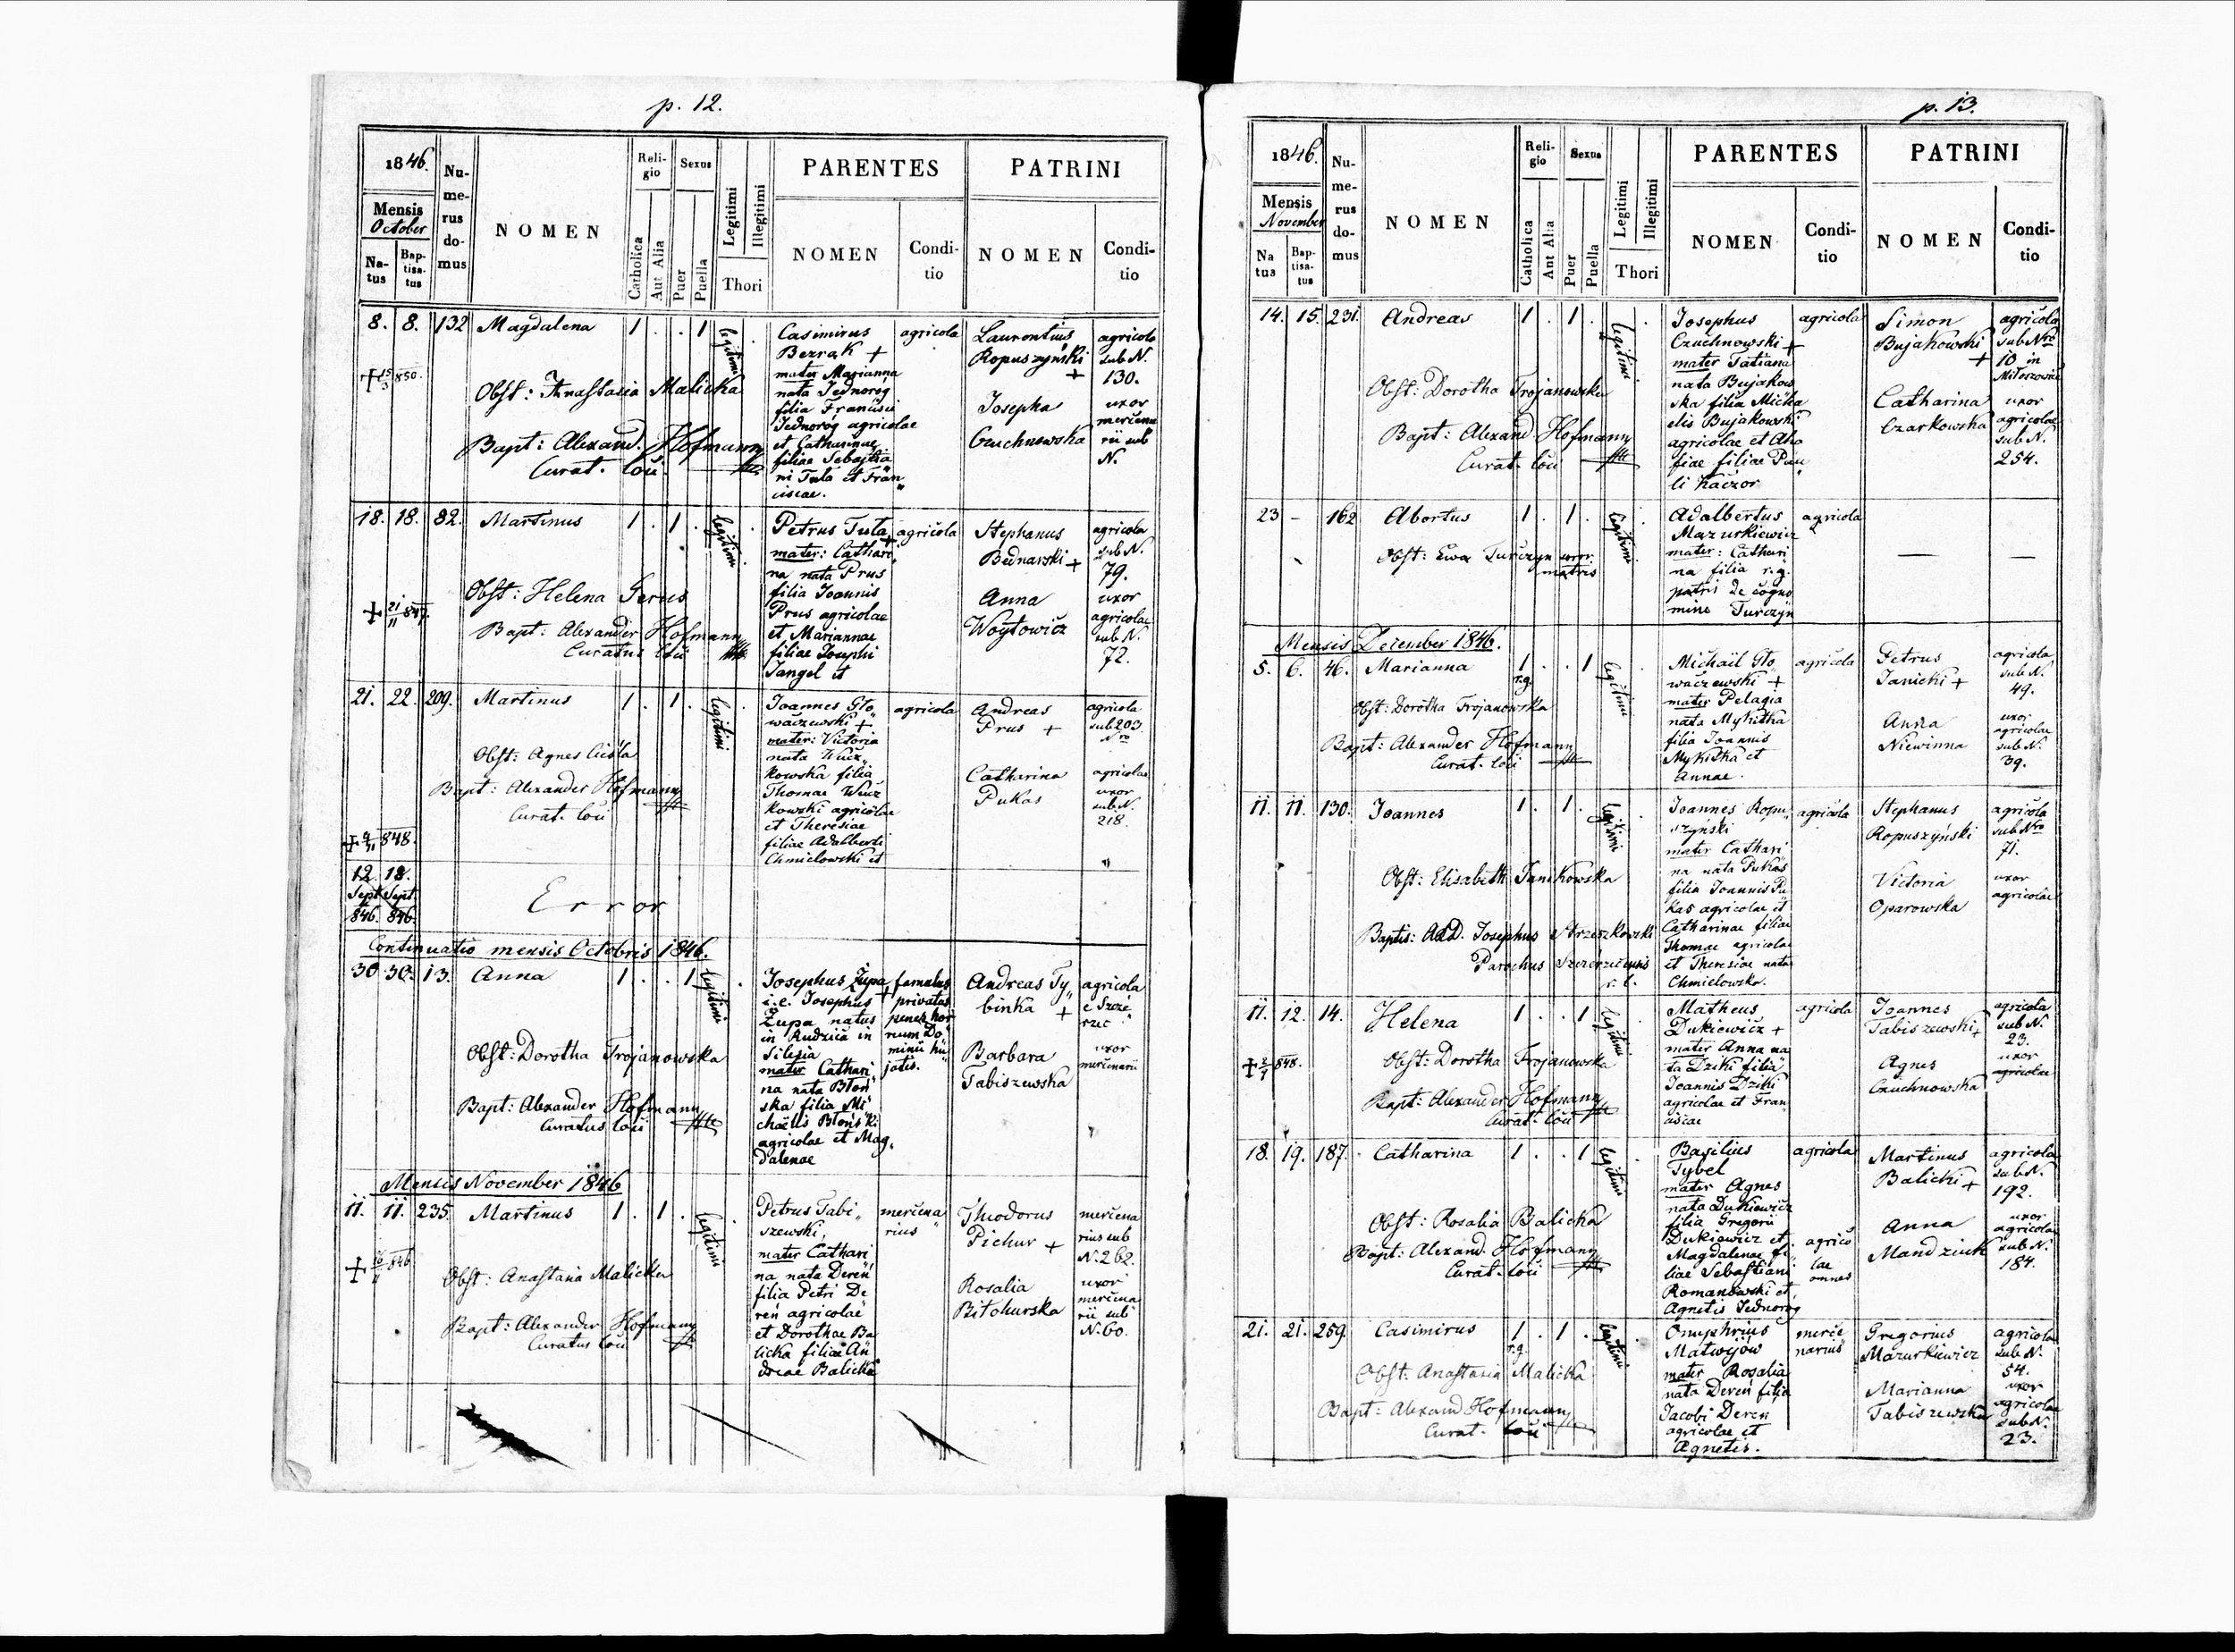 p. 12.
1846.
Mensis
October
Na-
tus
Bap-
tisa-
tus
Nu-
me-
rus
do-
mus
NOMEN
Reli-
gio
Catholica
Aut Alia
Sexus
Puer
Puella
Legitimi
Illegitimi
Thori
PARENTES
NOMEN
Condi-
tio
PATRINI
NOMEN
Condi-
tio
8. 8. 132 Magdalena 1 . . 1 legitimi .
+ 15/3 850.
Obst: Anastasia Malicka
Bapt: Alexand. Hofmann
Curat. loci
Casimirus
Bezrak +
mater Marianna
nata Jednoróg
filia Francisci
Jednoróg agricolae
et Catharinae
filiae Sebastia
ni Tula et Fran„
ciscae.
agricola
Laurentius
Ropuszyński
+
Josepha
Czuchnowska
agricola
sub N.
130.
uxor
mercena
rii sub
N.
18. 18. 82. Martinus 1 . 1 . legitimi .
+ 21/11 847.
Obst: Helena Gerus
Bapt: Alexander Hofmann
Curatus loci
Petrus Tula
mater: Cathari„
na nata Prus
filia Joannis
Prus agricolae
et Mariannae
filiae Josephi
Jangel et
agricola
Stephanus
Bednarski +
Anna
Woytowicz
agricola
sub N.
79.
uxor
agricolae
sub N.
72.
21. 22. 209. Martinus 1 . 1 . legitimi .
Obst: Agnes Cieśla
Bapt: Alexander Hofmann
Curat. loci
848.
Joannes Gło„
waczewski +
mater: Victoria
nata Wucz„
kowska filia
Thomae Wucz
kowski agricolae
et Theresiae
filiae Adalberti
Chmielowski et
agricola
Andreas
Prus +
Catharina
Pukas
agricola
sub 203
Nro
agricolae
uxor
sub N.
218.
12. 18.
Sept. Sept.
846. 846.
Error
Continuatio mensis Octobris 1846.
30. 30. 13. Anna 1 . . 1 legitimi .
Obst: Dorotha Trojanowska
Bapt: Alexander Hofmann
Curatus loci
Josephus Żupa
i.e. Josephus +
Żupa natus
in Rudzica in
Silesia
mater Cathari„
na nata Błoń
ska filia Mi
chaëlis Błoński
agricolae et Mag„
dalenae
famulus
privatus
penes hor
rum Do„
minii hu„
jatis.
Andreas Ty„
binka +
Barbara
Tabiszewska
agricola
e Szcze
rzec
uxor
mercenarii
Mensis November 1846
11. 11. 235. Martinus 1 . 1 . legitimi .
846
Obst: Anastasia Malicka
Bapt: Alexander Hofmann
Curatus loci
Petrus Tabi„
szewski,
mater Cathari
na nata Dereń
filia Petri De
reń agricolae
et Dorothae Ba
licka filiae An
dreae Balicki
mercena
rius
Theodorus
Pichur +
Rosalia
Bitohurska
mercena
rius sub
N. 262.
uxor
mercena
rii sub
N. 60.
p. 13.
1846.
Mensis
November
Na
tus
Bap-
tisa-
tus
Nu-
me-
rus
do-
mus
NOMEN
Reli-
gio
Catholica
Aut Alia
Sexus
Puer
Puella
Legitimi
Illegitimi
Thori
PARENTES
NOMEN
Condi-
tio
PATRINI
NOMEN
Condi-
tio
14. 15. 231. Andreas 1 . 1 . legitimi .
Obst: Dorotha Trojanowska
Bapt: Alexand Hofmann
Curat. loci
Josephus
Czuchnowski +
mater Tatiana
nata Bujakow
ska filia Micha
elis Bujakowski
agricolae et Aha
fiae filiae Pau„
li Kaczor
agricola
Simon
Bujakowski
+
Catharina
Czarkowska
agricola
sub Nro
10 in
Miłoszowice
uxor
agricolae
sub N.
254.
23 - 162 Abortus 1 . 1 . legitimi .
Obst: Ewa Turczyn soror
matris
Adalbertus
Mazurkiewicz
mater: Cathari
na filia r.g.
patris de cogno
mine Turczyn
agricola
— —
Mensis December 1846.
5. 6. 46. Marianna 1 . . 1 legitimi .
r.g.
Obst: Dorotha Trojanowska
Bapt: Alexander Hofmann
Curat. loci
Michaël Gło„
waczewski +
mater Pelagia
nata Mykitka
filia Joannis
Mykitka et
Annae.
agricola
Petrus
Janicki +
Anna
Niewinna
agricola
sub N.
49.
uxor
agricolae
sub N.
39.
11. 11. 130. Joannes 1 . 1 . legitimi
Obst: Elisabeth Janikowska
Baptis: Josephus Strzeszkowski
Parochus Szczerzecensis
r. l.
Joannes Ropu„
szyński
mater Cathari
na nata Pukas
filia Joannis Pu
kas agricolae et
Catharinae filiae
Thomae agricolae
et Theresiae nata
Chmielowska.
agricola
Stephanus
Ropuszyński
Victoria
Oparowska
agricola
sub Nro
71.
uxor
agricolae
11. 12. 14. Helena 1 . . 1 legitimi .
848.
Obst: Dorotha Trojanowska
Bapt: Alexander Hofmann
Curat. loci
Matheus
Dukiewicz +
mater Anna na
ta Dziki filia
Joannis Dziki
agricolae et Fran„
ciscae
agricola
Joannes
Tabiszewski +
Agnes
Czuchnowska
agricola
sub N.
23.
uxor
agricolae
18. 19. 187. Catharina 1 . . 1 legitimi .
Obst: Rosalia Balicka
Bapt: Alexand. Hofmann
Curat. loci
Basilius
Tybel
mater Agnes
nata Dukiewicz
filia Gregorii
Dukiewicz et
Magdalenae fi„
liae Sebastiani
Romanowski et
Agnetis Jednorog
agricola
agrico
lae
omnes
Martinus
Balicki +
Anna
Mandziuk
agricola
sub N.
192.
uxor
agricolae
sub N.
184.
21. 21. 259 Casimirus 1 . 1 . legitimi .
r.g.
Obst: Anastasia Malicka
Bapt: Alexand Hofmann
Curat. loci
Onuphrius
Matwijów
mater Rosalia
nata Dereń filia
Jacobi Dereń
agricolae et
Agnetis.
merce
narius
Gregorius
Mazurkiewicz
Marianna
Tabiszewska
agricola
sub N.
54.
uxor
agricolae
sub N.
23.